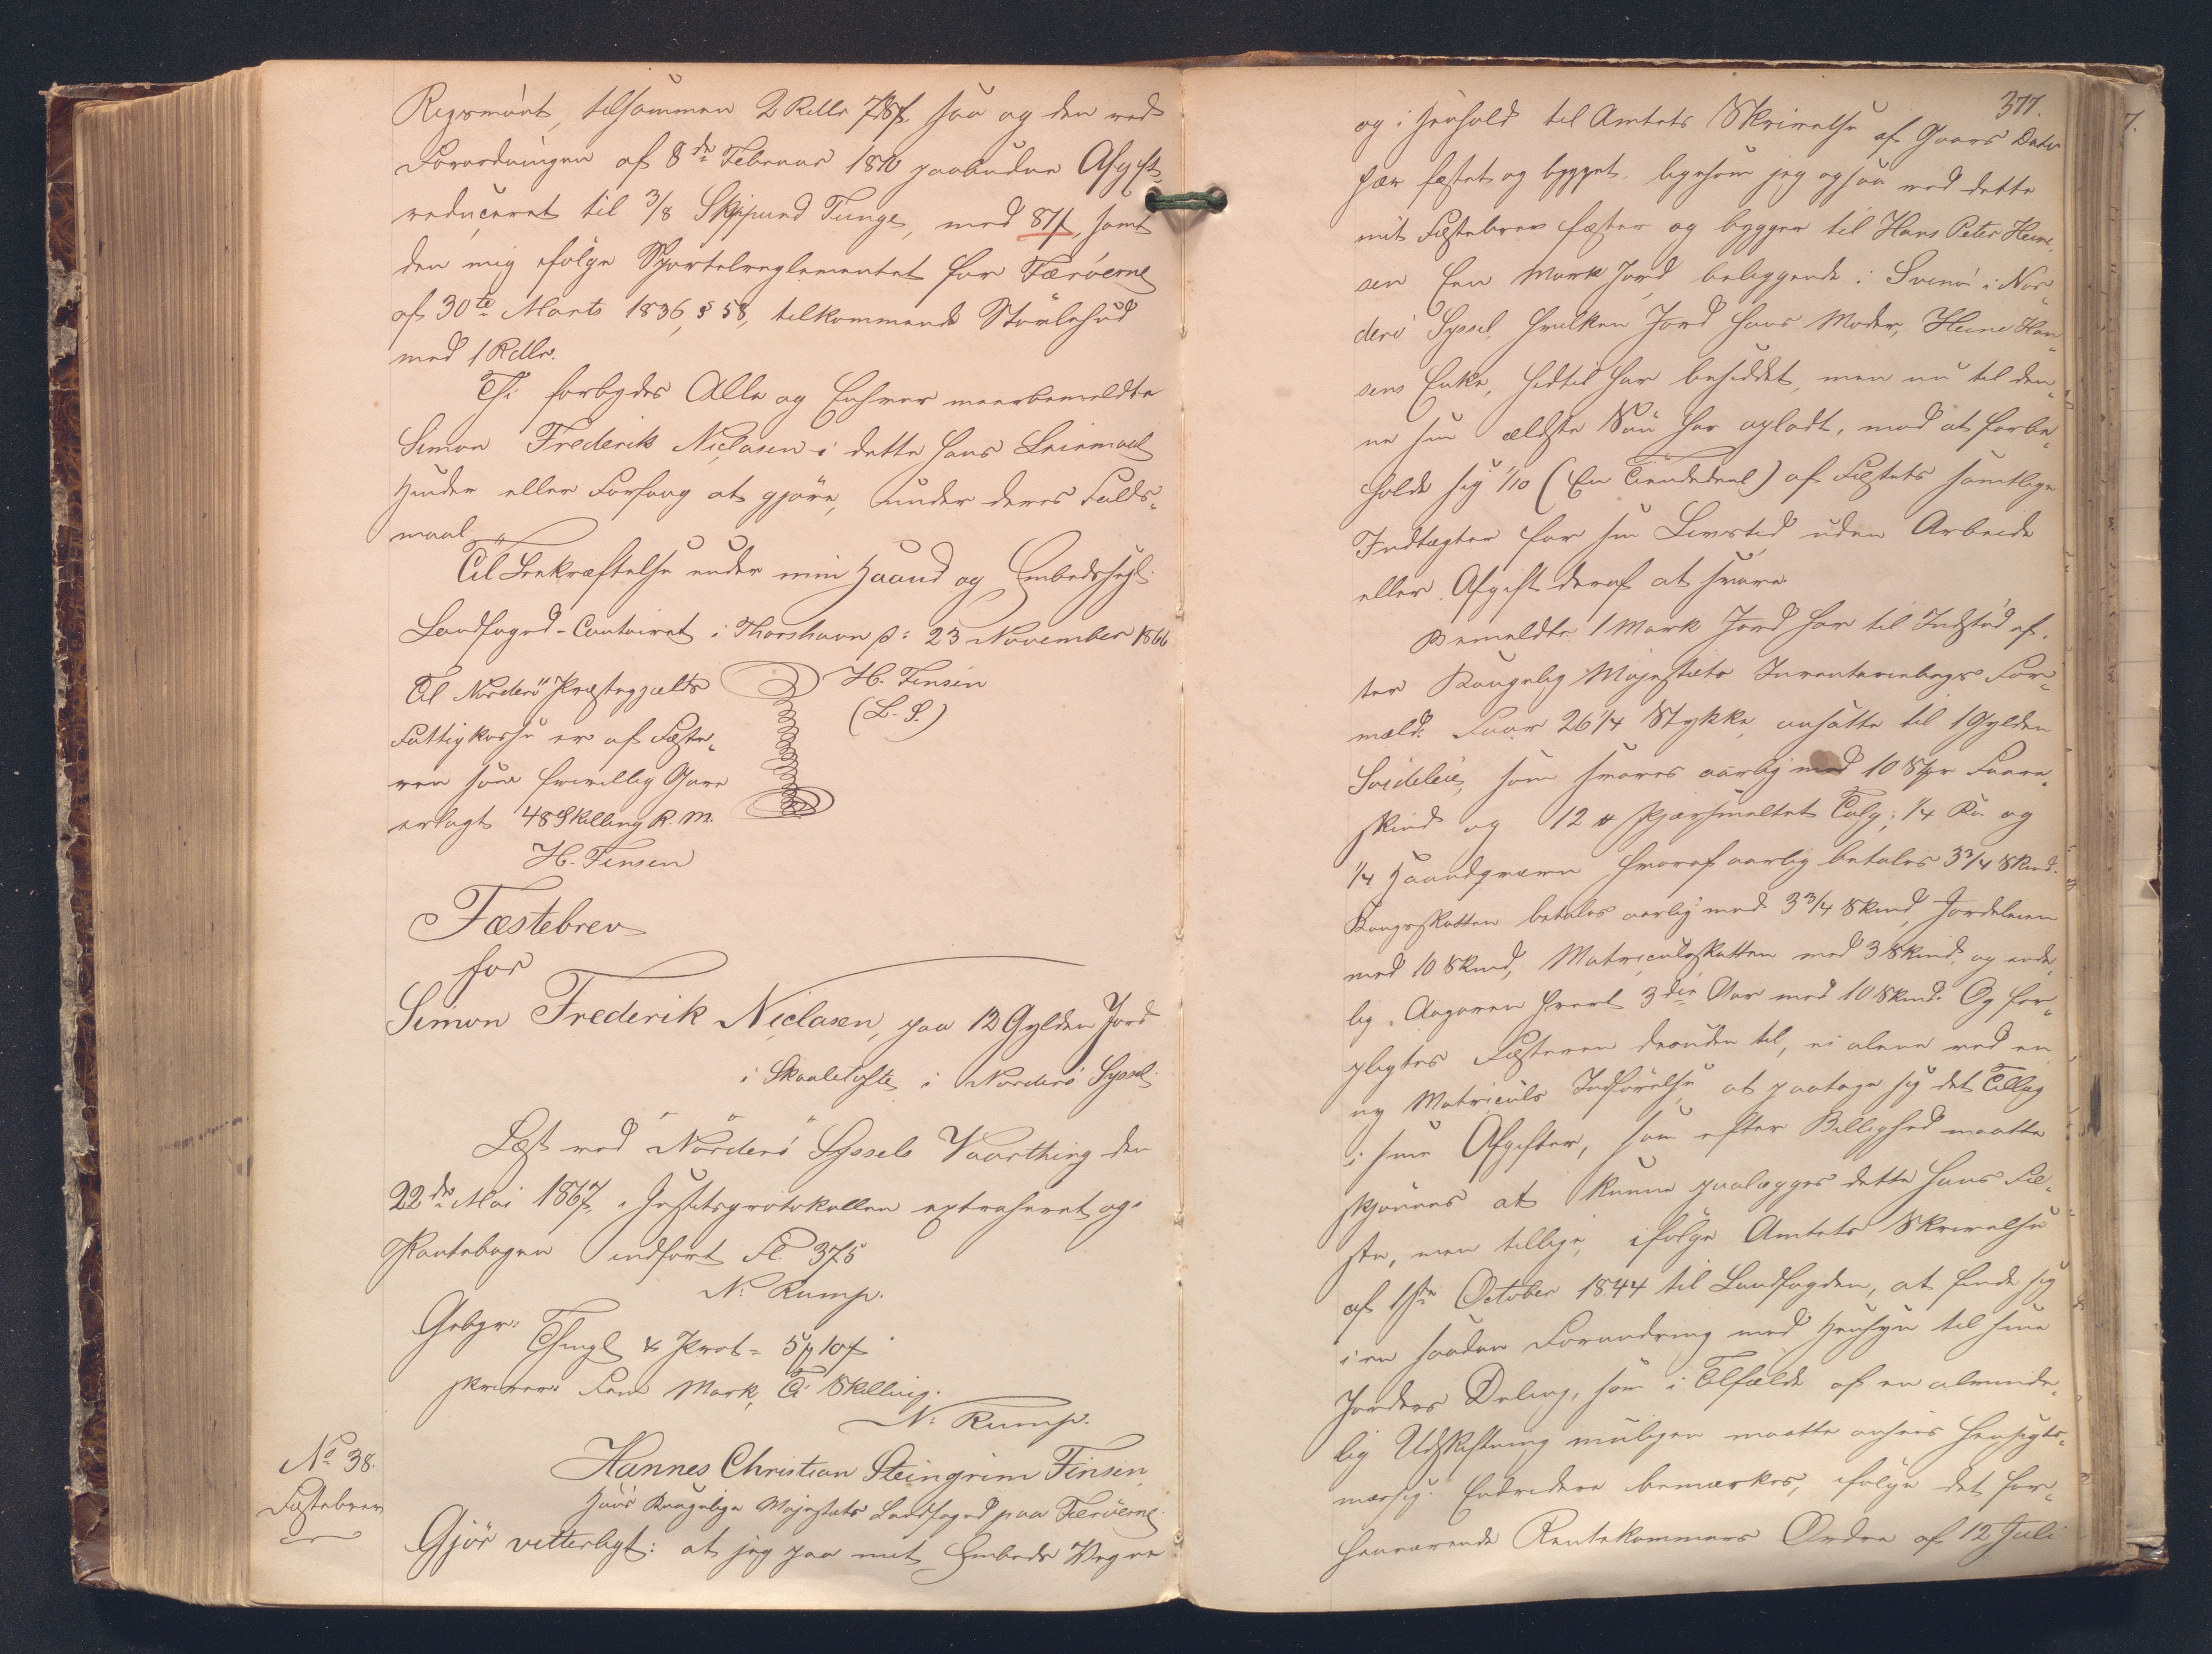 Rigsmønt, tilsammen 2 Rdlr 78 s, saa og den ved
Forordningen af 8de Februar 1810 paabudne Afgift,
reduceret til 3/8 Skippund Tunge, med 87 s, samt
den mig ifølge Sportelreglementet for Færöerne
af 30te Marts 1836, § 58, tilkommende Støvlehud
med 1 Rdlr.
Thi forbydes Alle og Enhver meerbemeldte
Simon Frederik Niclasen i dette hans Leiemaal
Hinder eller Forfang at gjøre, under deres Falds-
maal.
Til Bekræftelse under min Haand og Embedssegl.
Landfoged-Contoiret i Thorshavn d: 23 November 1866
H. Finsen
(L. S.)
Til Norderö Præstegjælds
Fattigkasse er af Fæste-
ren som frivillig Gave
erlagt 48 Skilling R. M.
H. Finsen
Fæstebrev
for
Simon Frederik Niclasen, paa 12 Gylden Jord
i Skaaletofte i Norderö Syssel.
Læst ved Norderö Syssels Vaarthing den
22de Mai 1867, Justitsprotokollen extraheret og i
Pantebogen indført Fl. 375
N. Rump.
Gebyr:
Thingl. & Prot. = 5 ℔ 10 s
skriver Fem Mark, Ti Skilling.
N. Rump.
No 38.
Fæstebrev
Hannes Christian Steingrim Finsen
Hans Kongelige Majestæts Landfoged paa Færöerne
Gjör vitterligt: at jeg paa mit Embeds Vegne
377.
og i Henhold til Amtets Skrivelse af Gaars Dato
har fæstet og bygget, ligesom jeg ogsaa ved dette
mit Fæstebrev fæster og bygger til Hans Peter Heine-
sen Een Mark Jord beliggende i Svinö i Nor-
derö Syssel, hvilken Jord hans Moder, Heine Han-
sens Enke, hidtil har besiddet, men nu til den-
ne sin ældste Søn har opladt, mod at forbe-
holde sig 1/10 (En Tiendedeel) af Fæstets samtlige
Indtægter for sin Livstid uden Arbeide
eller Afgift deraf at svare.
Bemeldte 1 Mark Jord har til Indstød ef-
ter Kongelig Majestæts Inventariebogs For-
meld: Faar 26 1/4 Stykke, ansatte til 1 Gylden
Soideleie, som svares aarlig med 10 Stkr Faare-
skind og 12 ℔ skjærsmeltet Talg; 1/4 Ko og
1/4 Haandqværn hvoraf aarlig betales 3 3/4 Skind.
Kongsskatten betales aarlig med 3 3/4 Skind, Jordeleien
med 10 Skind, Matriculsskatten med 3 Skind, og ende-
lig Aagaven hvert 3die Aar med 10 Skind. Og for-
pligtes Fæsteren desuden til, ei alene ved en
ny Matriculs Indførelse, at paatage sig det Tillæg
i sine Afgifter, som efter Billighed maatte
skjønnes at kunne paalægges dette hans Fæ-
ste, men tillige, ifølge Amtets Skrivelse
af 1ste October 1844 til Landfogden, at finde sig
i en saadan Forandring med Hensyn til sine
Jorders Deling, som i Tilfælde af en alminde-
lig Udskiftning muligen maatte ansees hensigts-
mæssig. Endvidere bemærkes, ifølge det for-
henværende Rentekammers Ordre af 12 Juli